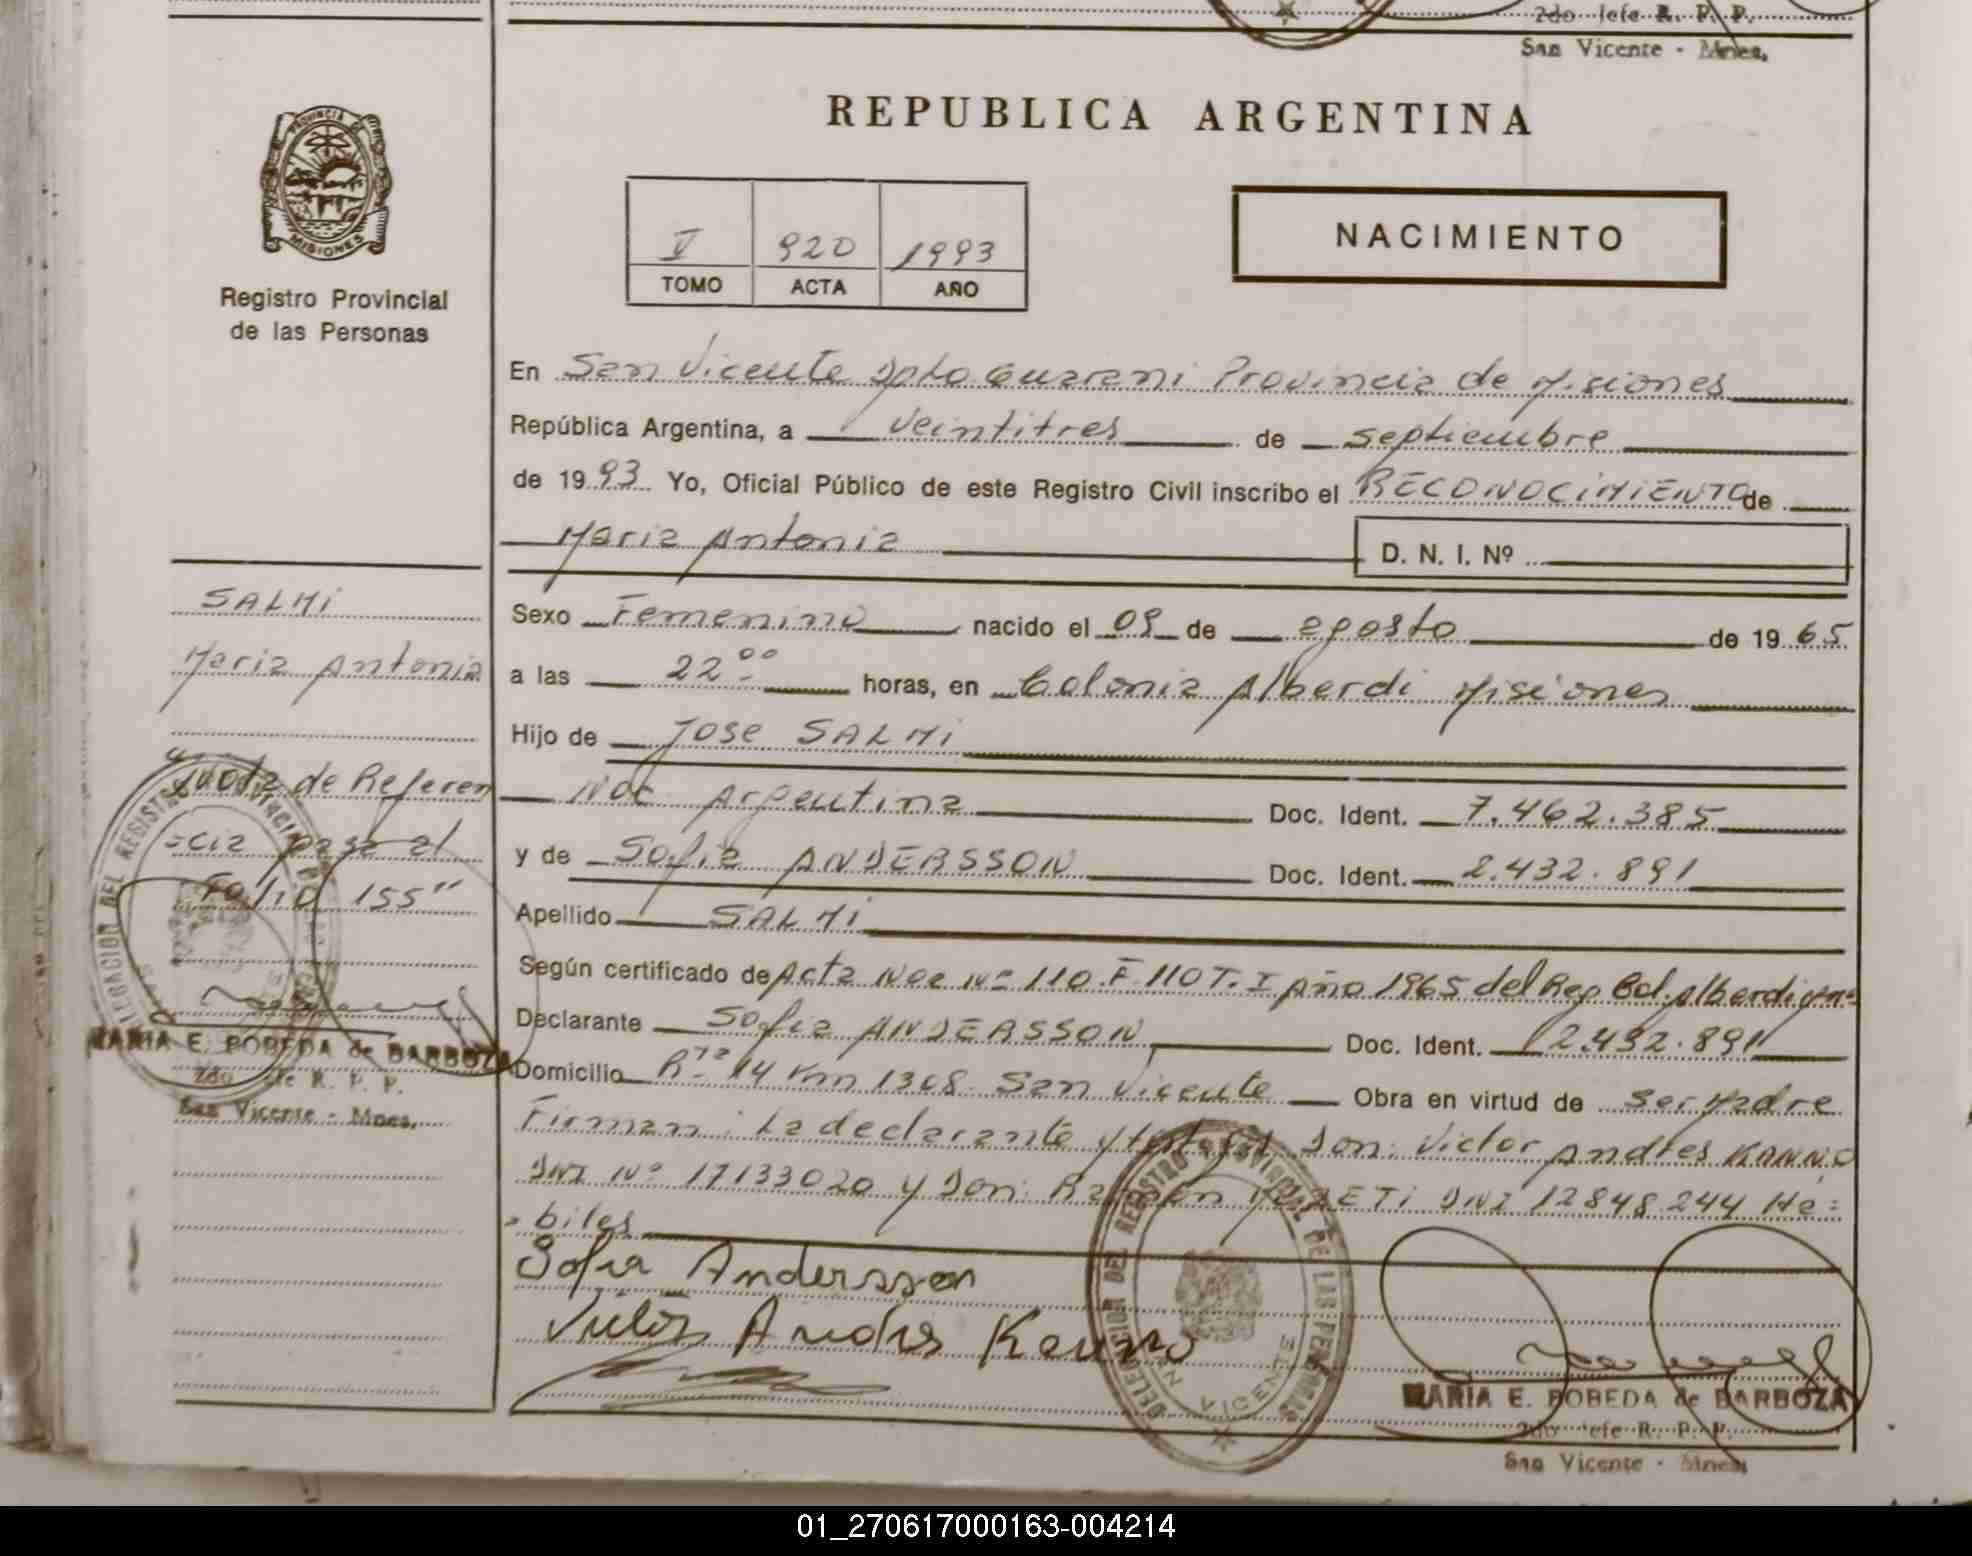 2do Jefe R. P. P.
San Vicente - Mnes.
PROVINCIA DE
MISIONES
Registro Provincial
de las Personas
REPUBLICA ARGENTINA
V 920 1993
TOMO ACTA AÑO
NACIMIENTO
En San Vicente Dpto Guarani Provincia de Misiones
República Argentina, a veintitres de septiembre
de 1993 Yo, Oficial Público de este Registro Civil inscribo el RECONOCIMIENTO de
Maria Antonia D. N. I. Nº
Sexo Femenino nacido el 09 de agosto de 1965
a las 22 00 horas, en Colonia Alberdi Misiones
Hijo de Jose SALMi
Nac Argentina Doc. Ident. 7.462.385
y de Sofia ANDERSSON Doc. Ident. 2.432.891
Apellido SALMi
Según certificado de Acta Nac Nº 110 F. 110 T. I Año 1965 del Reg Col. Alberdi Mnes
Declarante Sofia ANDERSSON Doc. Ident. 2.432.891
Domicilio R 14 Km 1308 San Vicente Obra en virtud de ser Madre
Firman: La declarante y testigos Don: Victor Andres
DNI Nº 17133020 y Don: DNI 12848.244 Há=
=biles
Sofia Andersson
SALMi
Maria Antonia
"Nota de Referen
=cia pasa al
Folio 155"
MARIA E. POBEDA de BARBOZA
2do Jefe R. P. P.
San Vicente - Mnes.
DELEGACION DEL REGISTRO PROVINCIAL DE LAS PERSONAS
SAN VICENTE
MARIA E. POBEDA de BARBOZA
2do Jefe R. P. P.
San Vicente - Mnes.
01_270617000163-004214